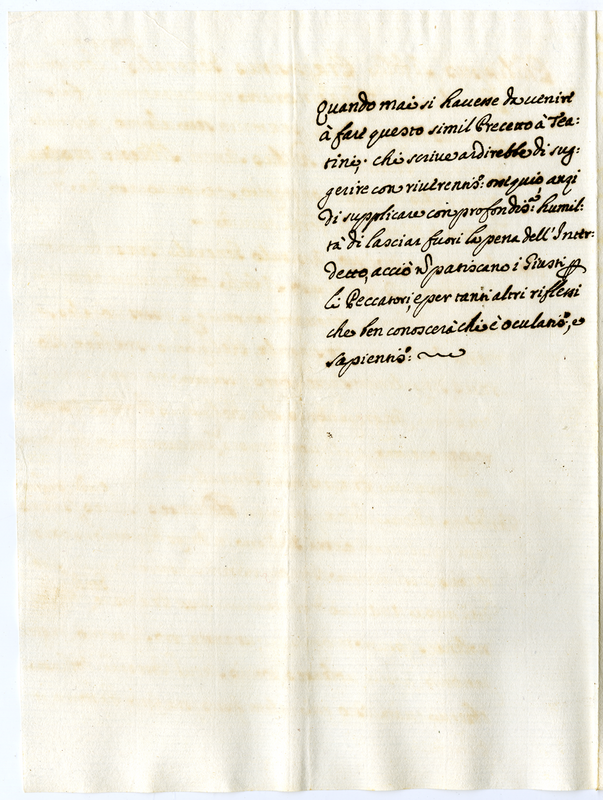 Quando mai si havesse da venire
à fare questo simil Precetto à Tea:
tini, chi scrive ardirebbe di sug:
gerire con riverentis.º ossequio, anzi
di supplicare con profondis.ª humil:
tà di lasciar fuori la pena dell'Inter:
detto, acciò ñ patiscano i Giusti p
li Peccatori, e per tanti altri riflessi
che ben conoscerà chi è oculatis.º, e
sapientis.º: